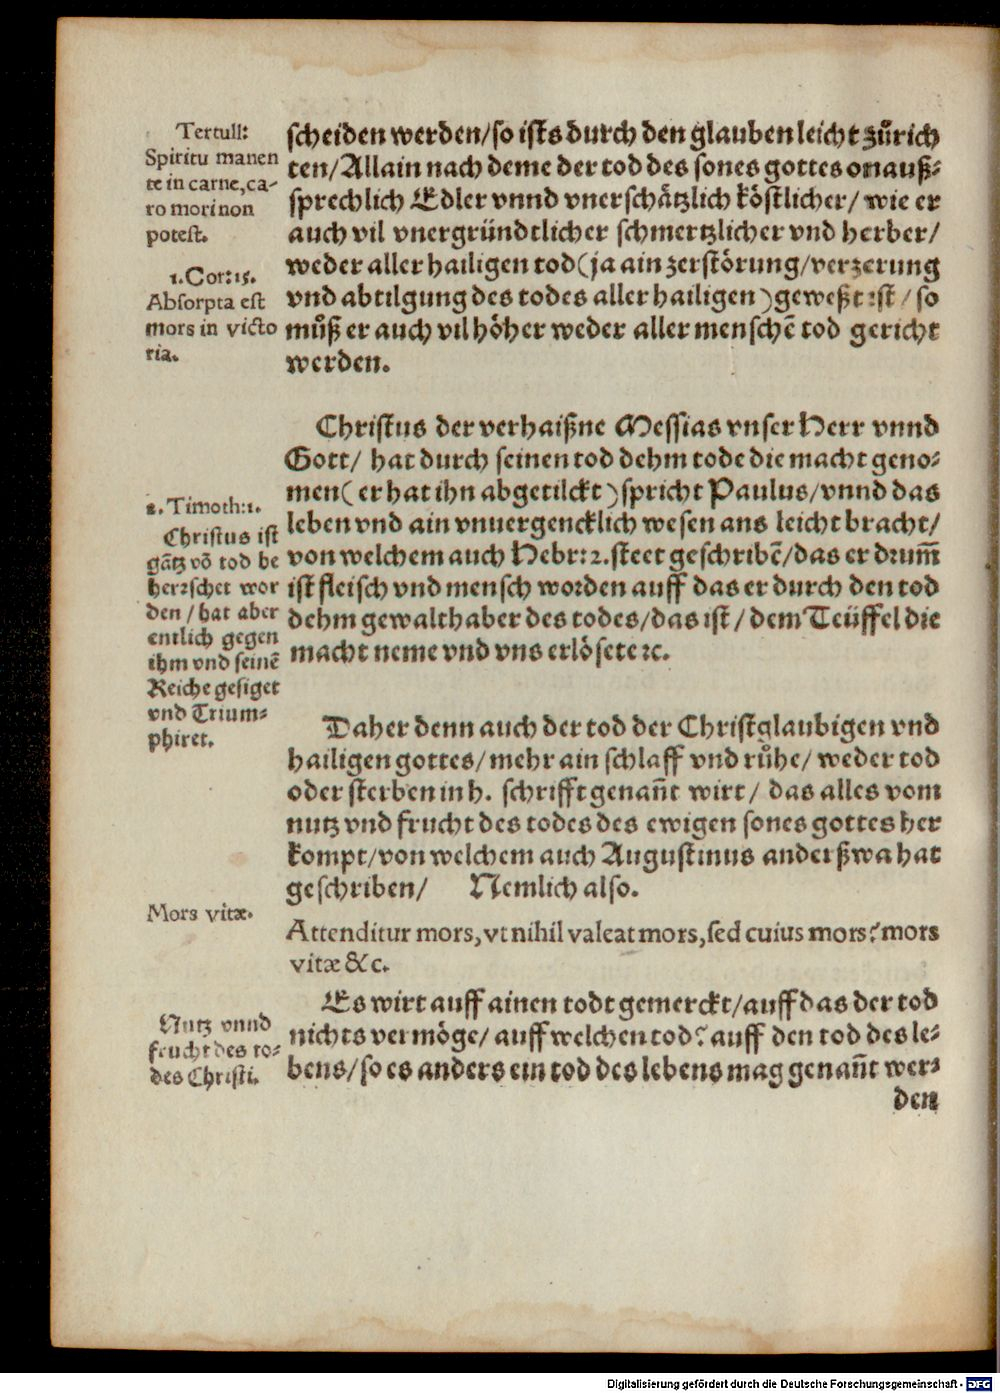 Tertull:
Spiritu manen
te in carne, ca-
ro mori non
potest.
1. Cor: 15.
Absorpta est
mors in victo
ria.
scheiden werden/ so ists durch den glauben leicht zůrich
ten/ Allain nach deme der tod des sones gottes onauß-
sprechlich Edler vnnd vnerschätzlich köstlicher/ wie er
auch vil vnergründtlicher schmertzlicher vnd herber/
weder aller hailigen tod (ja ain zerstörung/ verzerung
vnd abtilgung des todes aller hailigen) geweßt ist / so
můß er auch vil höher weder aller menschē tod gericht
werden.
Christus der verhaißne Messias vnser Herr vnnd
Gott/ hat durch seinen tod dehm tode die macht geno-
men (er hat ihn abgetilckt) spricht Paulus/ vnnd das
leben vnd ain vnuergencklich wesen ans leicht bracht/
von welchem auch Hebr: 2. steet geschribē/ das er drum̄
ist fleisch vnd mensch worden auff das er durch den tod
dehm gewalthaber des todes/ das ist / dem Teüffel die
macht neme vnd vns erlösete ꝛc.
2. Timoth: 1.
Christus ist
gātz vō tod be
herrschet wor
den / hat aber
entlich gegen
ihm vnd seinē
Reiche gesiget
vnd Trium-
phiret.
Daher denn auch der tod der Christglaubigen vnd
hailigen gottes/ mehr ain schlaff vnd růhe/ weder tod
oder sterben in h. schrifft genan̄t wirt/ das alles vom
nutz vnd frucht des todes des ewigen sones gottes her
kompt/ von welchem auch Augustinus anderßwa hat
geschriben/ Nemlich also.
Mors vitæ.
Attenditur mors, vt nihil valeat mors, sed cuius mors? mors
vitæ &c.
Es wirt auff ainen todt gemerckt/ auff das der tod
nichts vermöge/ auff welchen tod? auff den tod des le-
bens/ so es anders ein tod des lebens mag genan̄t wer-
den
Nutz vnnd
frucht des to-
des Christi.
Digitalisierung gefördert durch die Deutsche Forschungsgemeinschaft - DFG